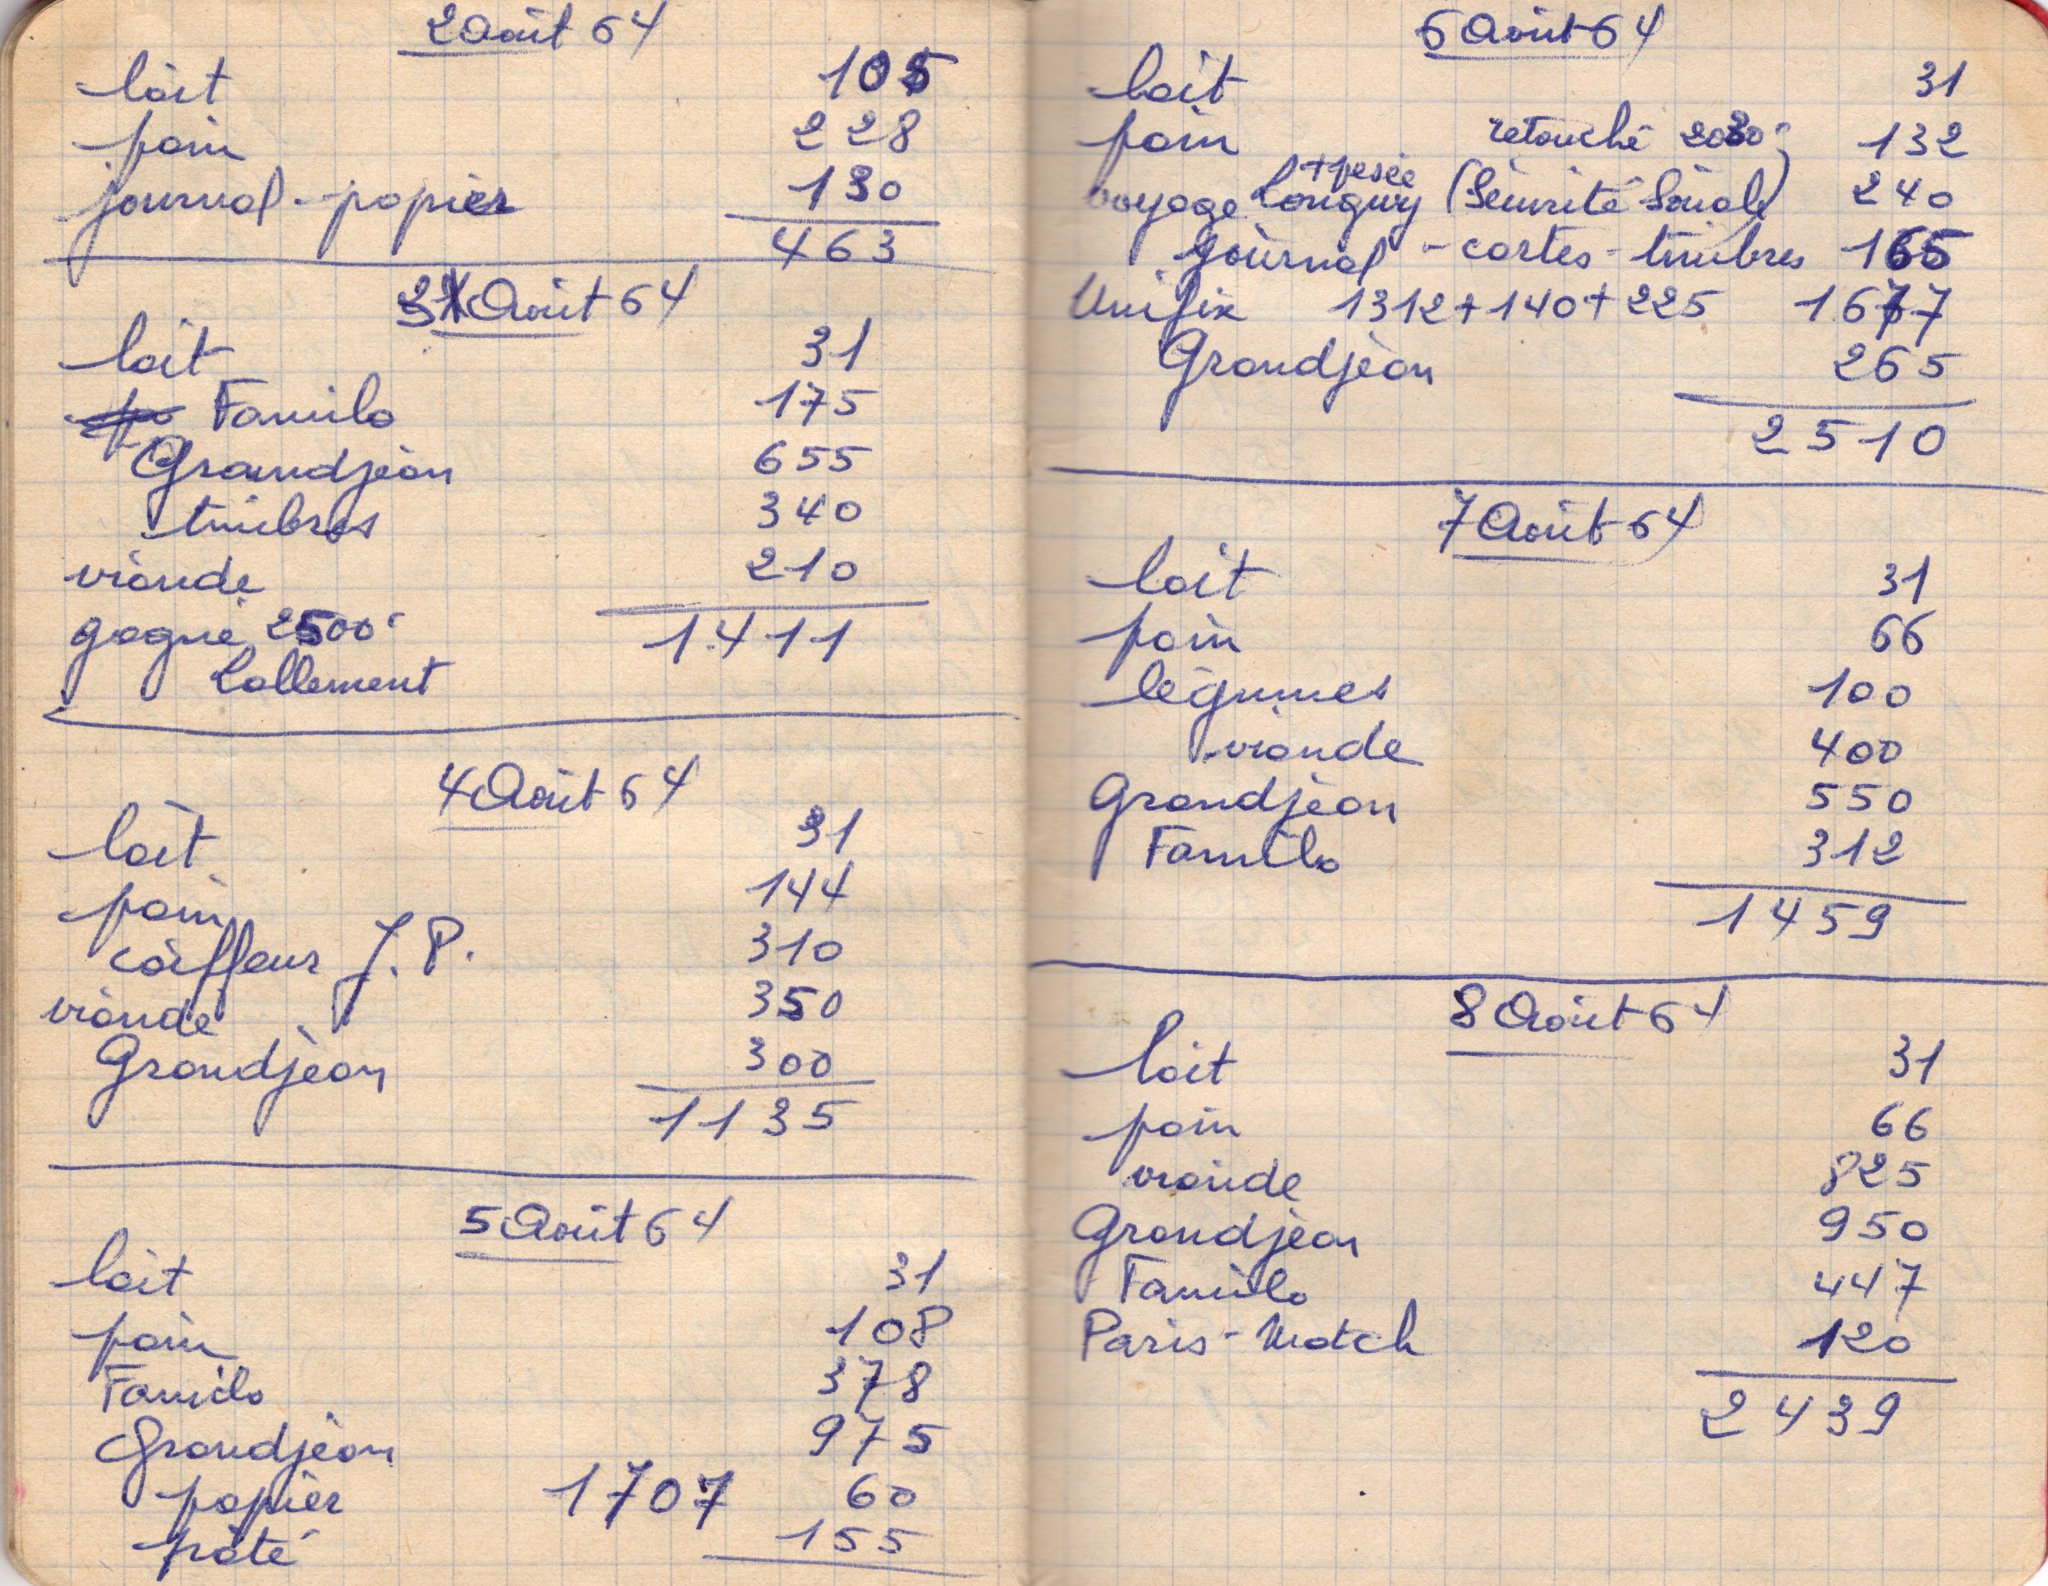 2 Août 64
lait 105
pain 228
journal - papier 130
463
3 Août 64
lait 31
Familo 175
Grandjean 655
timbres 340
viande 210
gagné 2500
1411
Lallement
4 Août 64
lait 31
pain 144
coiffeur J. P. 310
viande 350
Grandjean 300
1135
5 Août 64
lait 31
pain 108
Familo 378
Grandjean 975
papier 1707 60
pâté 155
6 Août 64
lait 31
pain retouché 132
+ pesée
voyage Longwy (Sécurité Sociale) 240
journal - cartes - timbres 165
Unifix 1312+140+225 1677
Grandjean 265
2510
7 Août 64
lait 31
pain 66
légumes 100
viande 400
Grandjean 550
Familo 312
1459
8 Août 64
lait 31
pain 66
viande 825
Grandjean 950
Familo 447
Paris-Match 120
2439